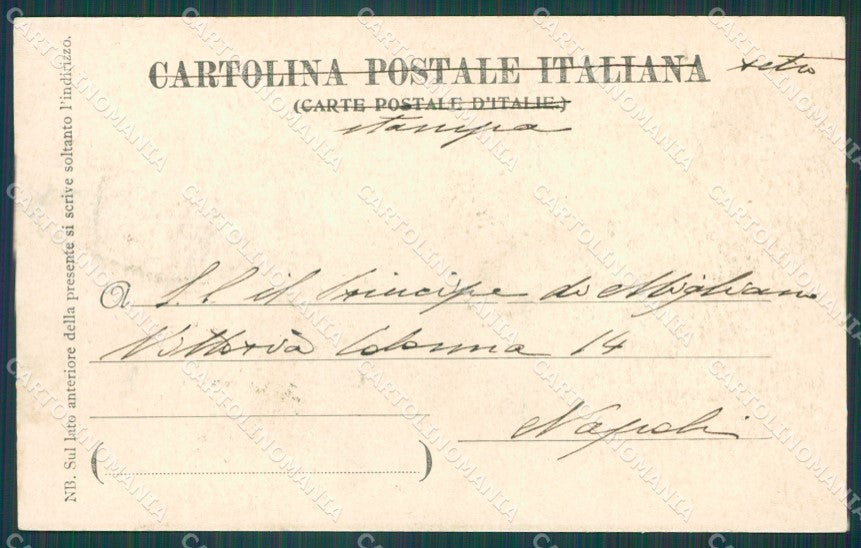 CARTOLINA POSTALE ITALIANA retro
(CARTE POSTALE D'ITALIE.)
stampa
A S. E. il Principe di Migliano
Vittoria Colonna 14
Napoli
NB. Sul lato anteriore della presente si scrive soltanto l'indirizzo.
CARTOLINOMANIA